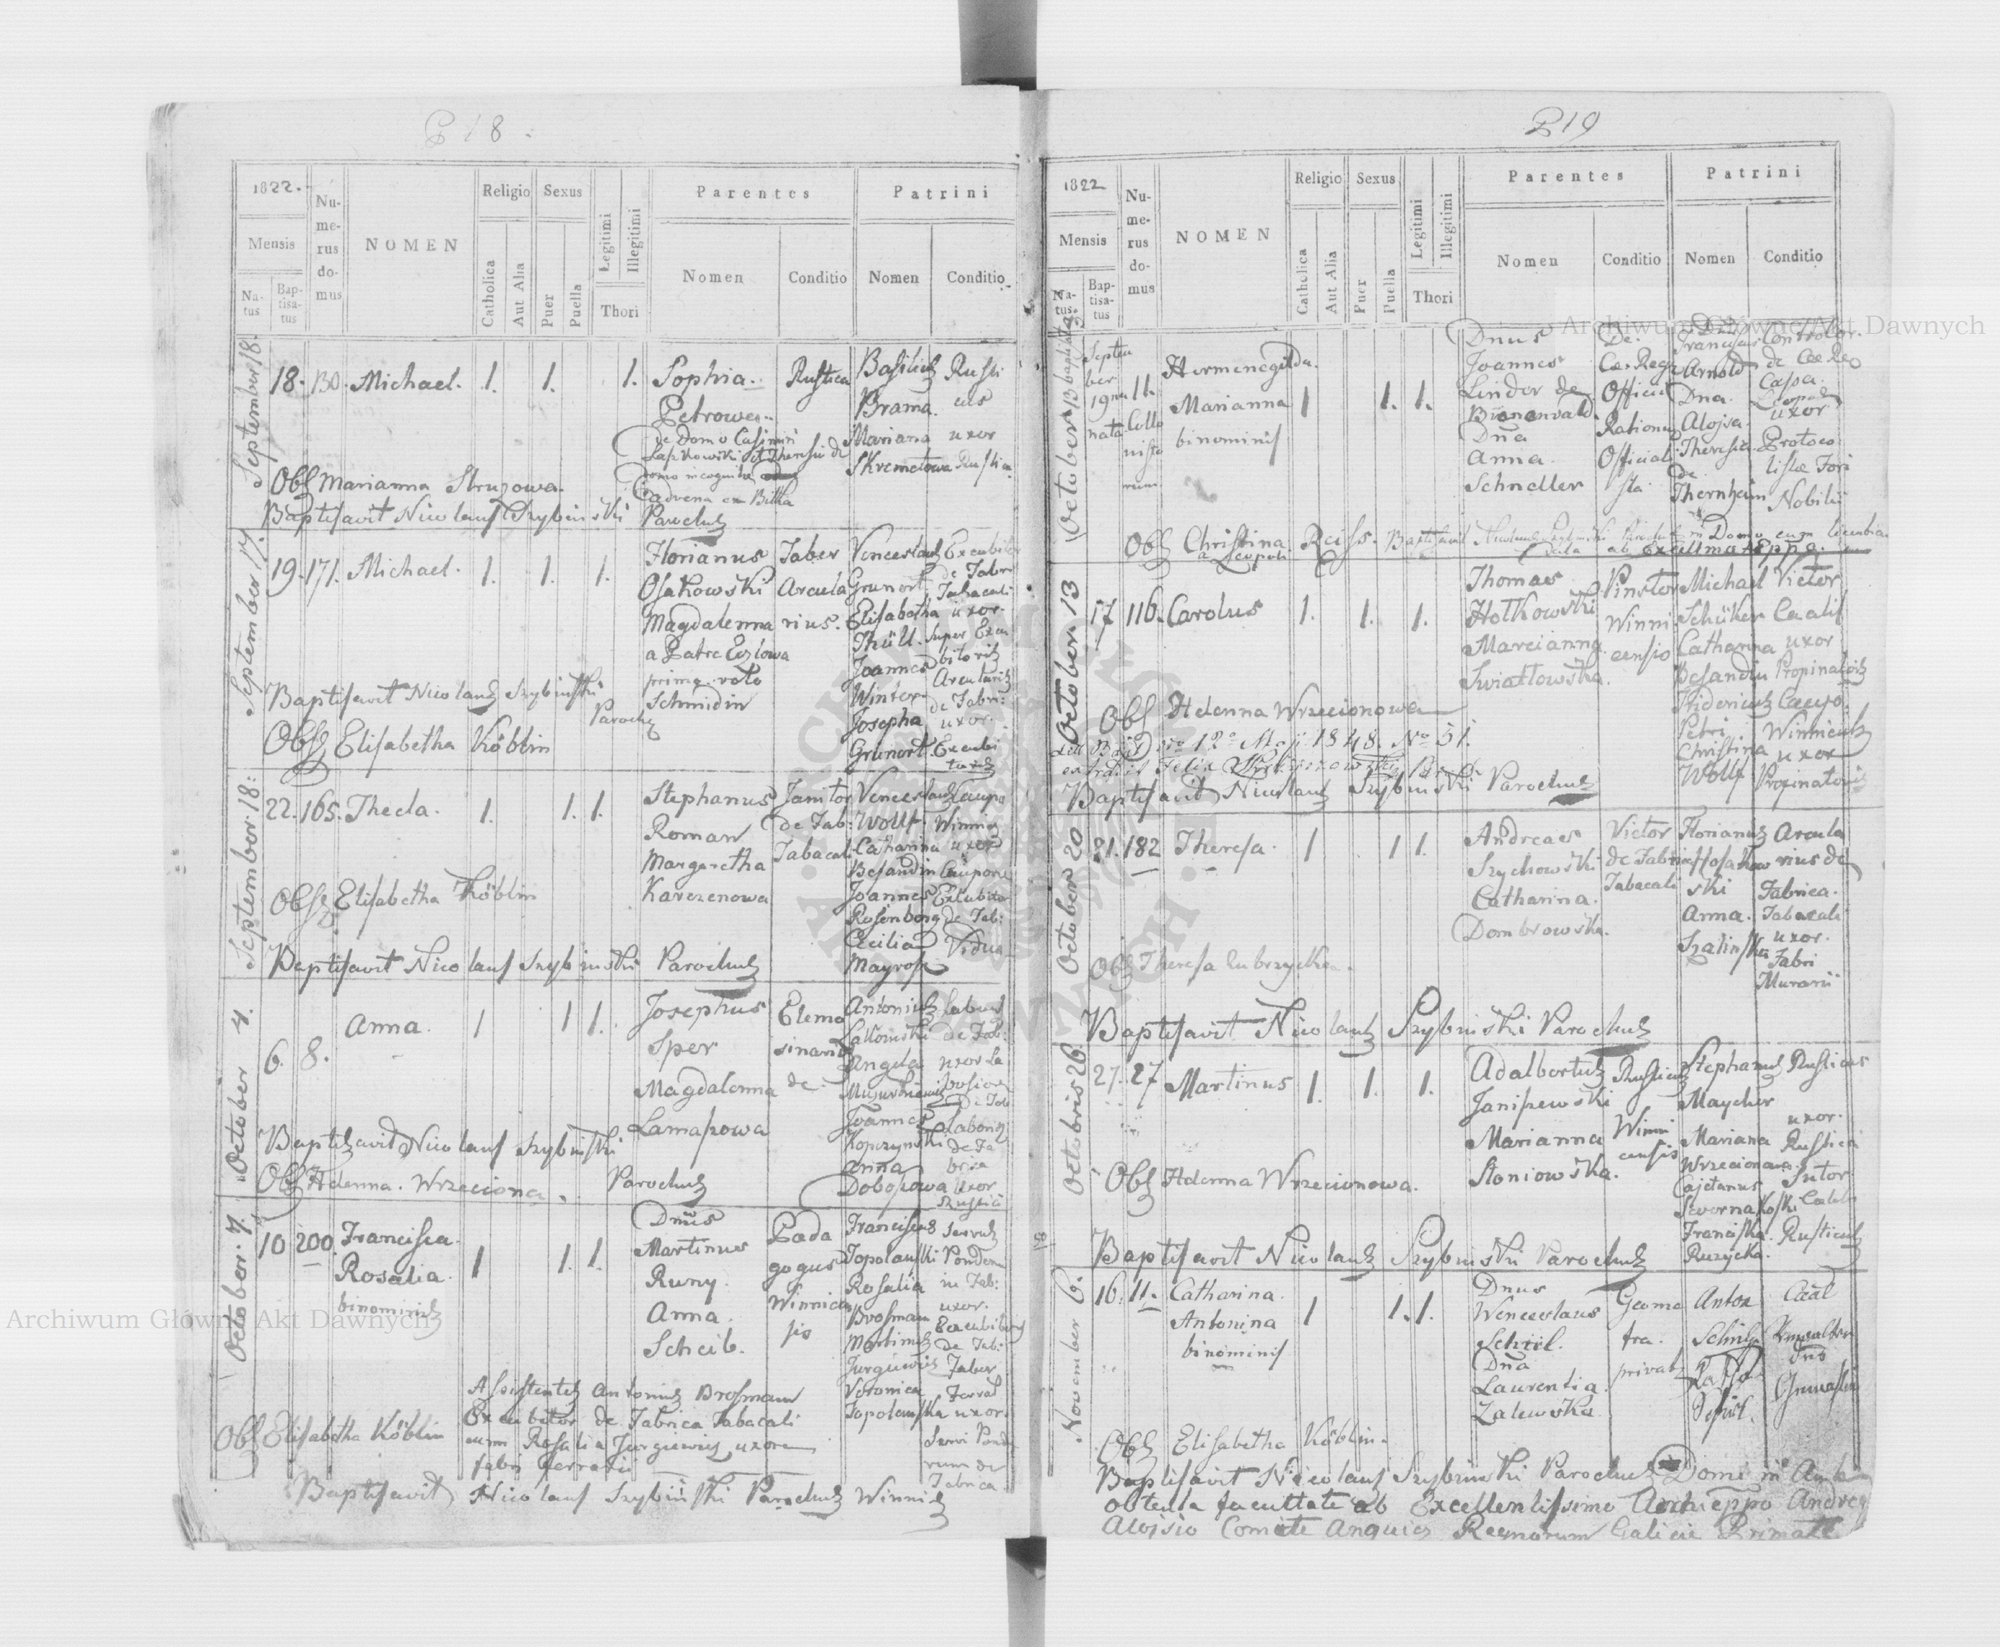 P 18
1822.
Mensis
Na-
tus
Bap-
tisa-
tus
Nu-
me-
rus
do-
mus
NOMEN
Religio
Catholica
Aut Alia
Sexus
Puer
Puella
Legitimi
Illegitimi
Thori
Parentes
Nomen
Conditio
Patrini
Nomen
Conditio
September 18.
18. 130. Michael. 1. 1. 1.
Sophia
Petrowa
de Domo Casimiri
Rustica
Basilius
Brama.
Mariana
Skremetowa
Rusti
cus
uxor
Rustica
Obst Marianna Struzowa.
Baptisavit Nicolaus Szybinski
Parochus
September 17.
19. 171. Michael. 1. 1. 1.
Florianus
Osakowski
Magdalenna
a Patre Eozlowa
primo voto
Schmidin
Faber
Arcula
rius.
Venceslaus
Grunort
Elisabetha
Thüll.
Joannes
Winter
Josepha
Grunort
Excubitor
de Fabri
Tabacali
uxor.
Super Excu
bitoris
Arcularius
de Fabri:
uxor.
Excubi
toris
Baptisavit Nicolaus Szybinski
Parochus
Obst Elisabetha Köblin
September 18:
22. 165. Thecla. 1. 1. 1.
Stephanus
Roman
Margaretha
Karczenowa
Janitor
de Fab:
Tabacal
Venceslaus
Wolf.
Catharina
Besandin
Joannes
Rosenberg
Cecilia
Mayrof
Caupo
Winnic
uxor
Caupona
Excubitor
de Fab:
Vidua
Obst Elisabetha Köblin
Baptisavit Nicolaus Szybinski Parochus
October 4.
6. 8. Anna. 1 1 1.
Josephus
Sper
Magdalenna
Lamasowa
Elemo
sinarius
de
Antonius
Angela
Joannes
Kopczynski
Anna
Dobosowa
de Fab:
uxor La
de Fa
brica
uxor
Rustici
Baptisavit Nicolaus Szybinski
Parochus
Obst Helenna. Wrzeciona.
October. 7.
10 200 Francisca
Rosalia.
binominis
1 1. 1.
Dnus
Martinus
Runy.
Anna.
Scheib.
Peda
gogus
Winnicen
sis
Franciscus
Topolanski
Rosalia
Brosman
Martinus
Jurgiewis
Veronica
Topolanska
Servus
Ponderu
in Fab:
uxor.
Excubitoris
de Fab:
Faber
Ferrar
uxor
Servi Ponde
rum de
Fabrica.
Assistentes Antonius Brosmann
Excubitor de Fabrica Tabacali
cum Rosalia Jurgiewis uxore
fabri Ferrarii
Obst Elisabetha Köblin
Baptisavit Nicolaus Szybinski Parochus Winnic
P 19
1822
Mensis
Na-
tus
Bap-
tisa-
tus
Nu-
me-
rus
do-
mus
NOMEN
Religio
Catholica
Aut Alia
Sexus
Puer
Puella
Legitimi
Illegitimi
Thori
Parentes
Nomen
Conditio
Patrini
Nomen
Conditio
October 13 baptisata
Septem
ber
19na
nata
11.
Collo
nisto
rum
Hermenegilda.
Marianna
binominis
1 1. 1.
Dnus
Joannes
Linder de
Bienenvald
Dna
Anna
Schneller
De.
Cae. Rege
Officii
Rationum
Officiali
sta.
Dnus
Franciscus
Arnold
Dna.
Aloisa.
Theresia
de
Thernheim
Controlor.
de Cae Reg
Cassa
Leopol
uxor
Protoco
listae Fori
Nobiliu
Obst Christina Reiss. Baptisavit Nicolaus Szybinski Parochus in Domo cum licentia
a Leopoli data ab Excellmo Eppo.
October 13
17 116. Carolus 1. 1. 1.
Thomas
Hotkowski
Marcianna
Swiatlowska.
Pinstor
Winni
censis
Michael
Schüker
Catharina
Besandin
Petri
Christina
Wolf
Victor
uxor
Propinatoris
Winnicensis
uxor
Propinatoris
Obst Helenna Wrzecionowa
12º Maji 1848. Nº 51.
extradit Felix
Baptisavit Nicolaus Szybinski Parochus
October 20
21. 182 Theresa. 1 1 1.
Andreas
Szychowski
Catharina.
Dombrowska.
Victor
de Fabrica
Tabacali
Florianus
Hosakow
ski
Anna.
Szalinska
Arcula
rius de
Fabrica.
Tabacali
uxor.
Fabri
Murarii
Obst Theresa Lubrzycka.
Baptisavit Nicolaus Szybinski Parochus
Octobris 26
27. 27 Martinus 1. 1. 1.
Adalbertus
Janiszewski
Marianna
Sloniowska.
Rusticus
Winni
censis
Stephanus
Maycher
Mariana
Wrzecionowa.
Cajetanus
Skornakoski
Franciska.
Ruzycka.
Rusticus
uxor.
Rustici
Sutor
Rusticus
Obst Helenna Wrzecionowa.
Baptisavit Nicolaus Szybinski Parochus
November 6.
16. 11. Catharina.
Antonina
binominis
1 1. 1.
Dnus
Wenceslaus
Schiel.
Dna
Laurentia.
Zalewska
Geome
tra.
privat
Anton
Caal
Verwalter
Obst Elisabetha Köblin.
Baptisavit Nicolaus Szybinski Parochus Domi in
obtenta facultate ab Excellentissimo Archieppo Andrea
Aloisio Comite Anquicz Regnorum Galicie Primate
Archiwum Główne Akt Dawnych
Archiwum Główne Akt Dawnych